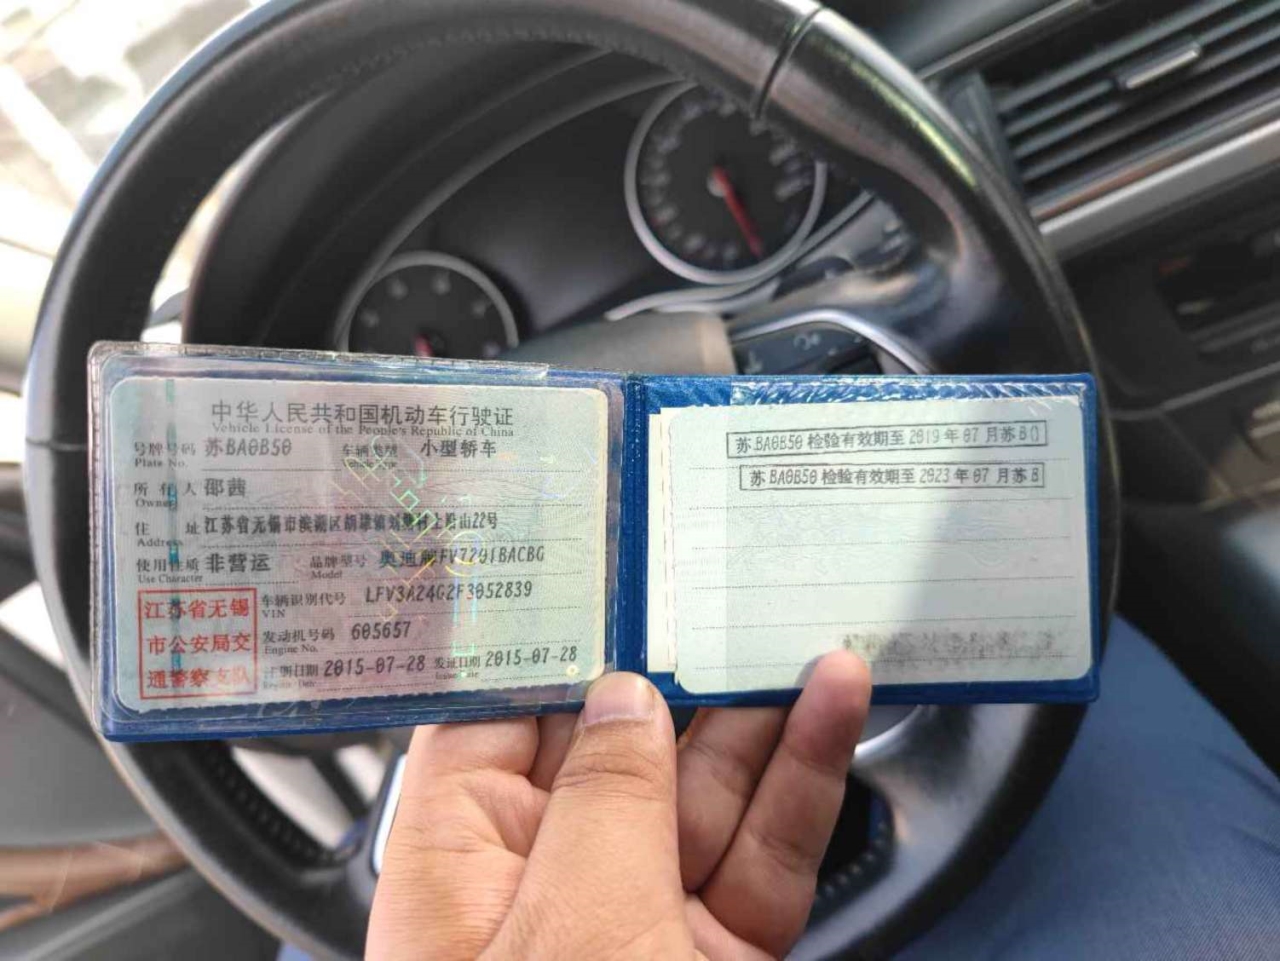 中华人民共和国机动车行驶证
Vehicle License of the People's Republic of China
号牌号码 苏BA0B50 车辆类型 小型轿车
Plate No.
所有人 邵茜
Owner
住 址 江苏省无锡市滨湖区胡埭镇刘塘村上舟山22号
Address
使用性质 非营运 品牌型号 奥迪牌FV7201BACBG
Use Character Model
江苏省无锡
市公安局交
通警察支队
车辆识别代号 LFV3A24G2F3052839
VIN
发动机号码 605657
Engine No.
注册日期 2015-07-28 发证日期 2015-07-28
Issue Date
苏BA0B50 检验有效期至 2019 年 07 月苏B
苏BA0B50 检验有效期至 2023 年 07 月苏B